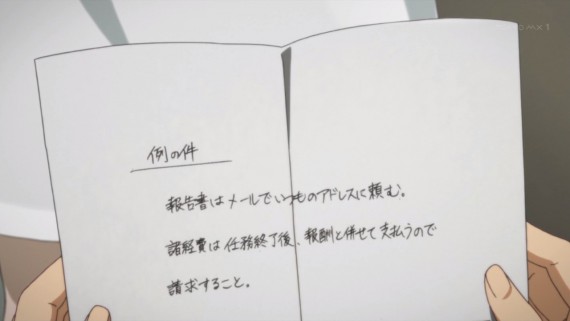 OMX1
例の件
報告書はメールでいつものアドレスに頼む。
諸経費は任務終了後、報酬と併せて支払うので
請求すること。